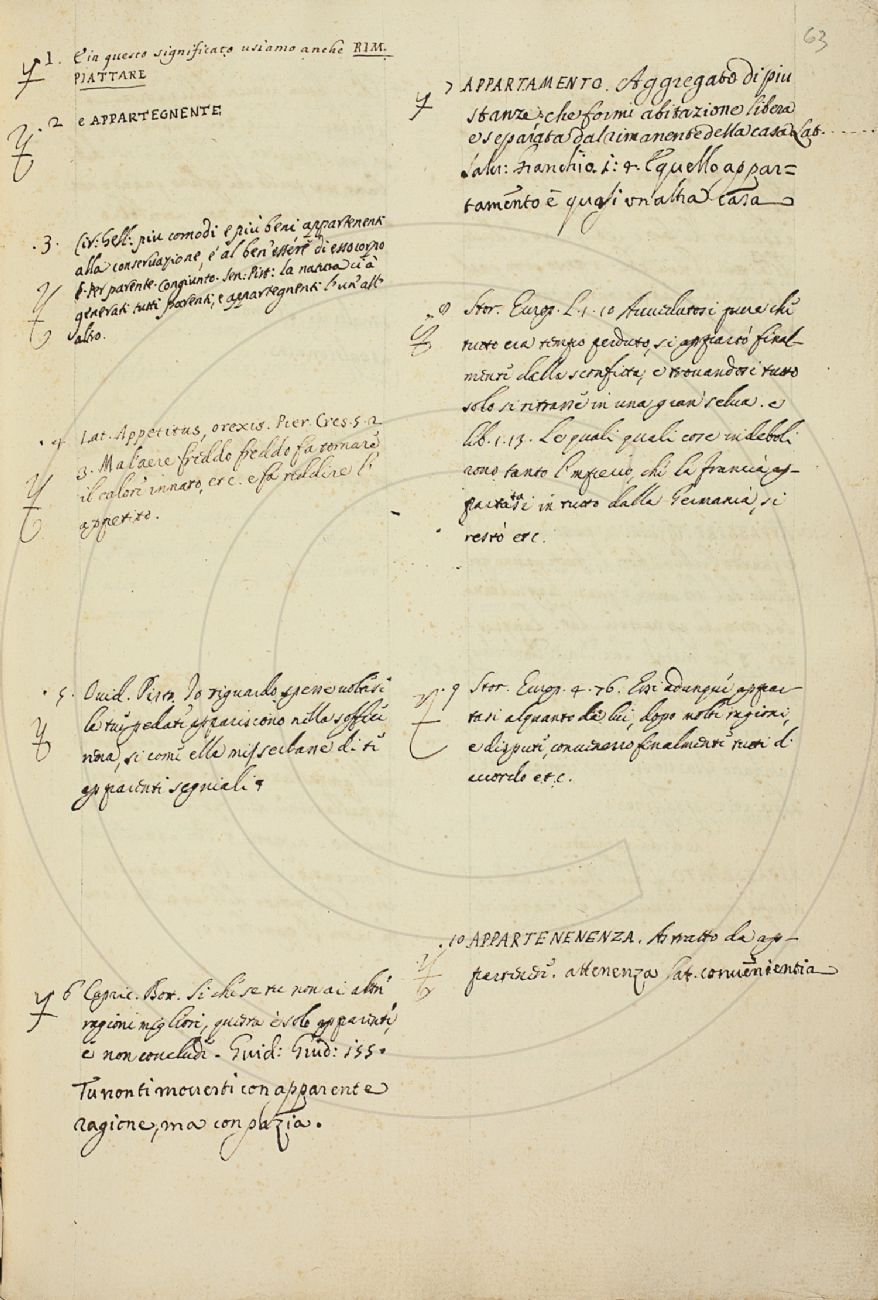 63
1. E in questo significato usiamo anche RIM.
PIATTARE
2 e APPARTEGNENTE
3. Circ: Gell: piu comodi e più beni appartenenti
alla conservazione, e al ben'essere di esso corpo
E per parente. congiunto. Sen: Pist: la natura ci à
generati tutti parenti, e appartegnenti l'un all'
altro.
4 Lat. Appetitus, orexis. Pier. Cres. 5. 2
3. Mal'aere freddo freddo fa tornare
il calore innato, etc. e fa reddire l'
appetito.
5. Ovid. Pist. Io riguardo spesse volte si
le tue pedate appariscono nella soffice
rena, si come ella mi serbasse di te
apparenti segniali
6 Capric. Bot. Si che se tu non ai altre
ragioni migliori, questa è solo apparente,
e non conclude. Guid: Giud: 155.
Tu non ti movesti con apparente
ragione, ma con pazia.
7 APPARTAMENTO. Aggregato di piu
stanze, che formi abitazione libera
e separata dal rimanente della casa. Lat. ......
Salv: Granchio. 1: 4. E quello appar=
tamento è quasi un'altra casa
8 Stor. Europ. L. 1. 10 Avvedutosi pure che
tutto era tempo perduto, si appartò final-
mente dalla sconfitta, e trovandosi tutto
solo si ritrasse in una gran' selva. e
lib. 1. 13. Le quali quali cose indeboli
rono tanto l'Imperio, che la Francia ap-
partatasi in tutto dalla Germania, si
restò etc.
9 Stor. Europ. 4. 76. Essi adunque appar-
tati alquanto da lui, dopo molte ragioni,
e dispute, convennero finalmente tutti d'
accordo etc.
10 APPARTENENENZA. Astratto da ap-
partenere. attenenza Lat. convenientia